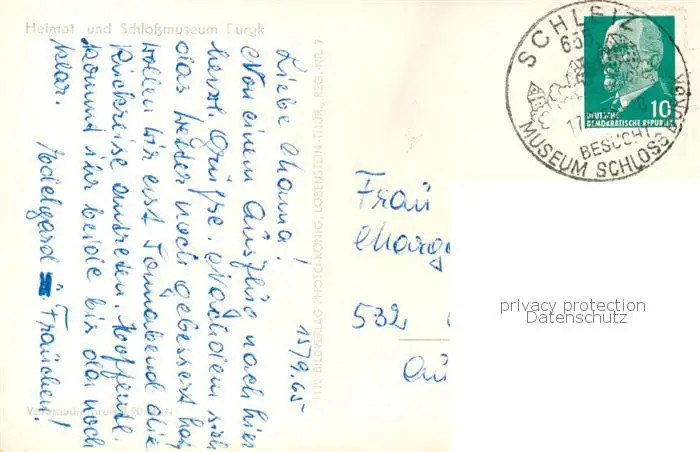 Heimat- und Schloßmuseum Burgk
15/9.65
Liebe Mama!
Von einem Ausflug nach hier
herzl. Grüße. Nachdem sich
das Wetter noch gebessert hat,
wollen wir erst Sonnabend die
Rückreise antreten. Hoffentl.
kommt ihr beide bis da noch
klar.
Edelgard u. Fränzchen!
1112 BILDVERLAG PHOTO-KÖNIG, LOBENSTEIN-THÜR., REG.-NR. 7
Frau
532
SCHLEIZ
BESUCHT
MUSEUM SCHLOSS BURGK
10
DEUTSCHE
DEMOKRATISCHE REPUBLIK
privacy protection
Datenschutz